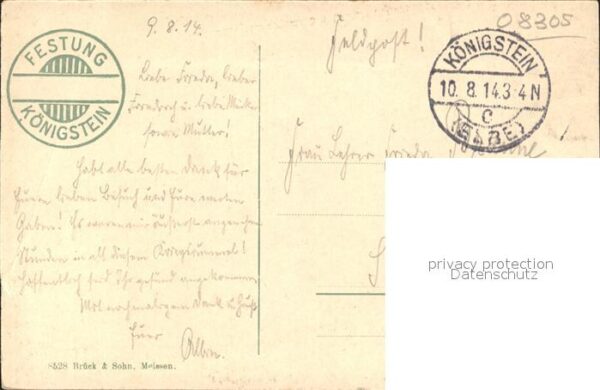 FESTUNG
KÖNIGSTEIN
9.8.14.
Feldpost!
08305
KÖNIGSTEIN
10. 8. 14. 3-4 N
c
(ELBE)
Liebe Frieda, lieber
Friedrich u. liebe
sowie Mutter!
Habt alle besten Dank für
Euern lieben Besuch und Eure werten
Gaben! Es waren äußerst angenehme
Stunden in all diesem Kriegsrummel!
Hoffentlich seid Ihr gesund angekommen.
Mit nochmaligem Dank u. Gruß
Euer
Albin.
Frau Lehrer Frieda
8528 Brück & Sohn, Meissen.
privacy protection
Datenschutz